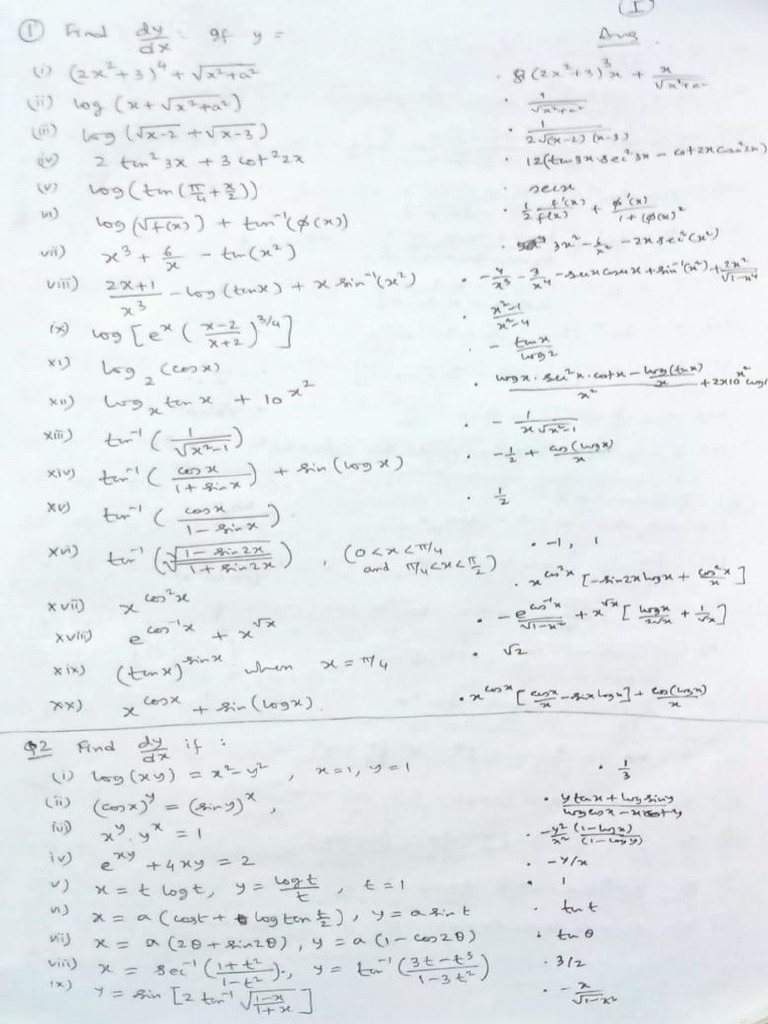 (I)
① Find dy/dx. If y = Ans
(i) (2x²+3)⁴ + √(x²+a²) · 8(2x²+3)³x + x/√(x²+a²)
(ii) log (x+√(x²+a²)) · 1/√(x²+a²)
(iii) log (√(x-2) + √(x-3)) · 1/(2√((x-2)(x-3)))
(iv) 2 tan² 3x + 3 cot² 2x · 12(tan3x sec²3x - cot2x cosec²2x)
(v) log(tan(π/4 + x/2)) · secx
vi) log(√f(x)) + tan⁻¹(φ(x)) · 1/2 f'(x)/f(x) + φ'(x)/(1+(φ(x))²
vii) x³ + 6/x - tan(x²) · 3x² - 6/x² - 2x sec²(x²)
viii) (2x+1)/x³ - log(tanx) + x sin⁻¹(x²) · -4/x³ - 3/x⁴ - secx cosecx + sin⁻¹(x²) + 2x²/√(1-x⁴)
ix) log [eˣ ((x-2)/(x+2))^(3/4)] · (x²-1)/(x²-4)
xi) log₂ (cosx) · - tanx/log2
xii) logₓ tan x + 10^(x²) · (logx · sec²x · cotx - log(tanx)/x)/x² + 2x10^(x²) log
xiii) tan⁻¹ (1/√(x²-1)) · - 1/(x√(x²-1))
xiv) tan⁻¹ (cosx/(1+sinx)) + sin(logx) · -1/2 + cos(logx)/x
xv) tan⁻¹ (cosx/(1-sinx)) · 1/2
xvi) tan⁻¹ (√((1-sin2x)/(1+sin2x))), (0<x<π/4 and π/4<x<π/2) · -1, 1
xvii) x^(cos²x) · x^(cos²x) [-sin2x logx + cos²x/x]
xviii) e^(cos⁻¹x) + x^√x · -e^(cos⁻¹x)/√(1-x²) + x^√x [logx/2√x + 1/√x]
xix) (tanx)^(sinx) when x = π/4 · √2
xx) x^(cosx) + sin(logx). · x^(cosx) [cosx/x - sinx logx] + cos(logx)/x
Q2 Find dy/dx if :
(i) log(xy) = x²-y², x=1, y=1 · 1/3
(ii) (cosx)^y = (siny)^x, · (ytanx + log siny)/(logcosx - xcoty)
iii) x^y · y^x = 1 · -y²/x² (1-logx)/(1-logy)
iv) e^(xy) + 4xy = 2 · -y/x
v) x = t logt, y = logt/t, t=1 · 1
vi) x = a(cost + log tan t/2), y = a sin t · tan t
vii) x = a(2θ + sin2θ), y = a(1-cos2θ) · tan θ
viii) x = sec⁻¹((1+t²)/(1-t²))., y = tan⁻¹((3t-t³)/(1-3t²)) · 3/2
ix) y = sin [2 tan⁻¹ √((1-x)/(1+x))] · -x/√(1-x²)